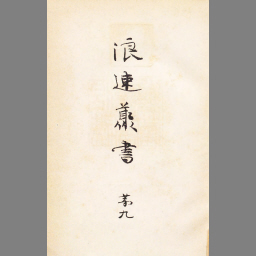 浪速叢書
第九